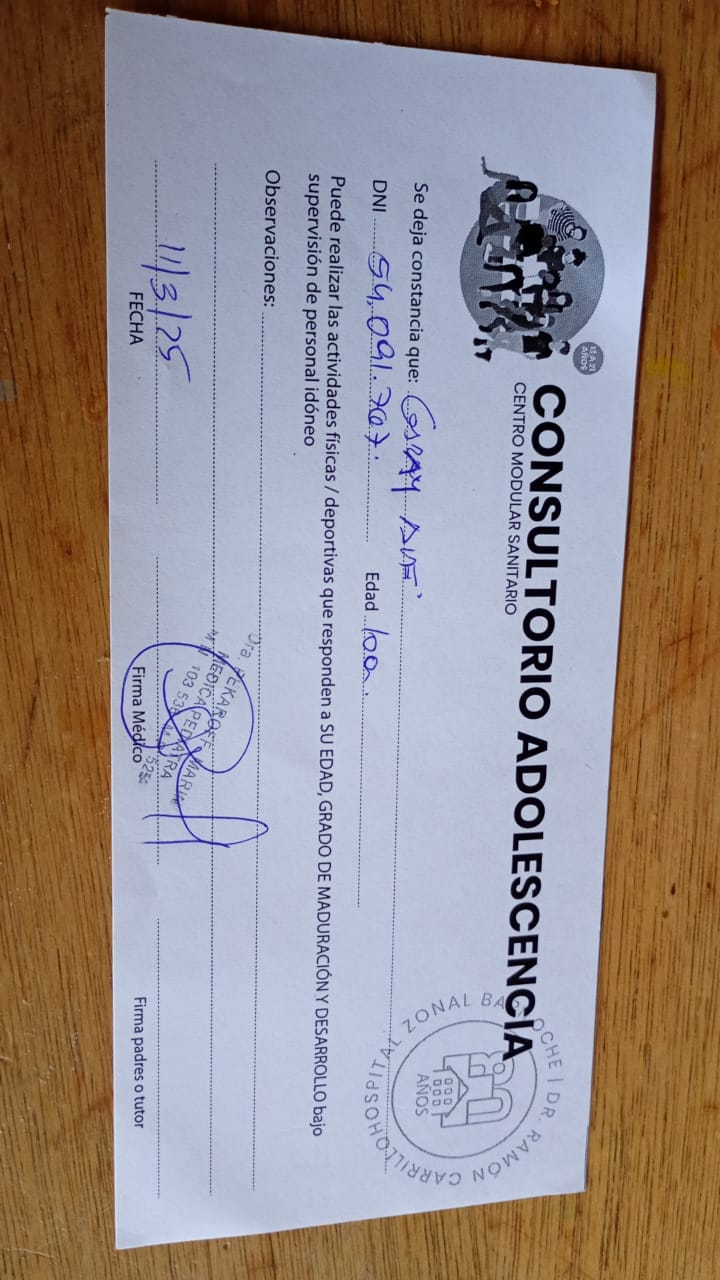 12 A 21
AÑOS
CONSULTORIO ADOLESCENCIA
CENTRO MODULAR SANITARIO
HOSPITAL ZONAL BARILOCHE | DR. RAMÓN CARRILLO
80
AÑOS
Se deja constancia que:
DNI 54.091.707. Edad 10a.
Puede realizar las actividades físicas / deportivas que responden a SU EDAD, GRADO DE MADURACIÓN Y DESARROLLO bajo
supervisión de personal idóneo
Observaciones:
11/3/25
Dra.
MEDICA PEDIATRA
FECHA
Firma Médico
Firma padres o tutor